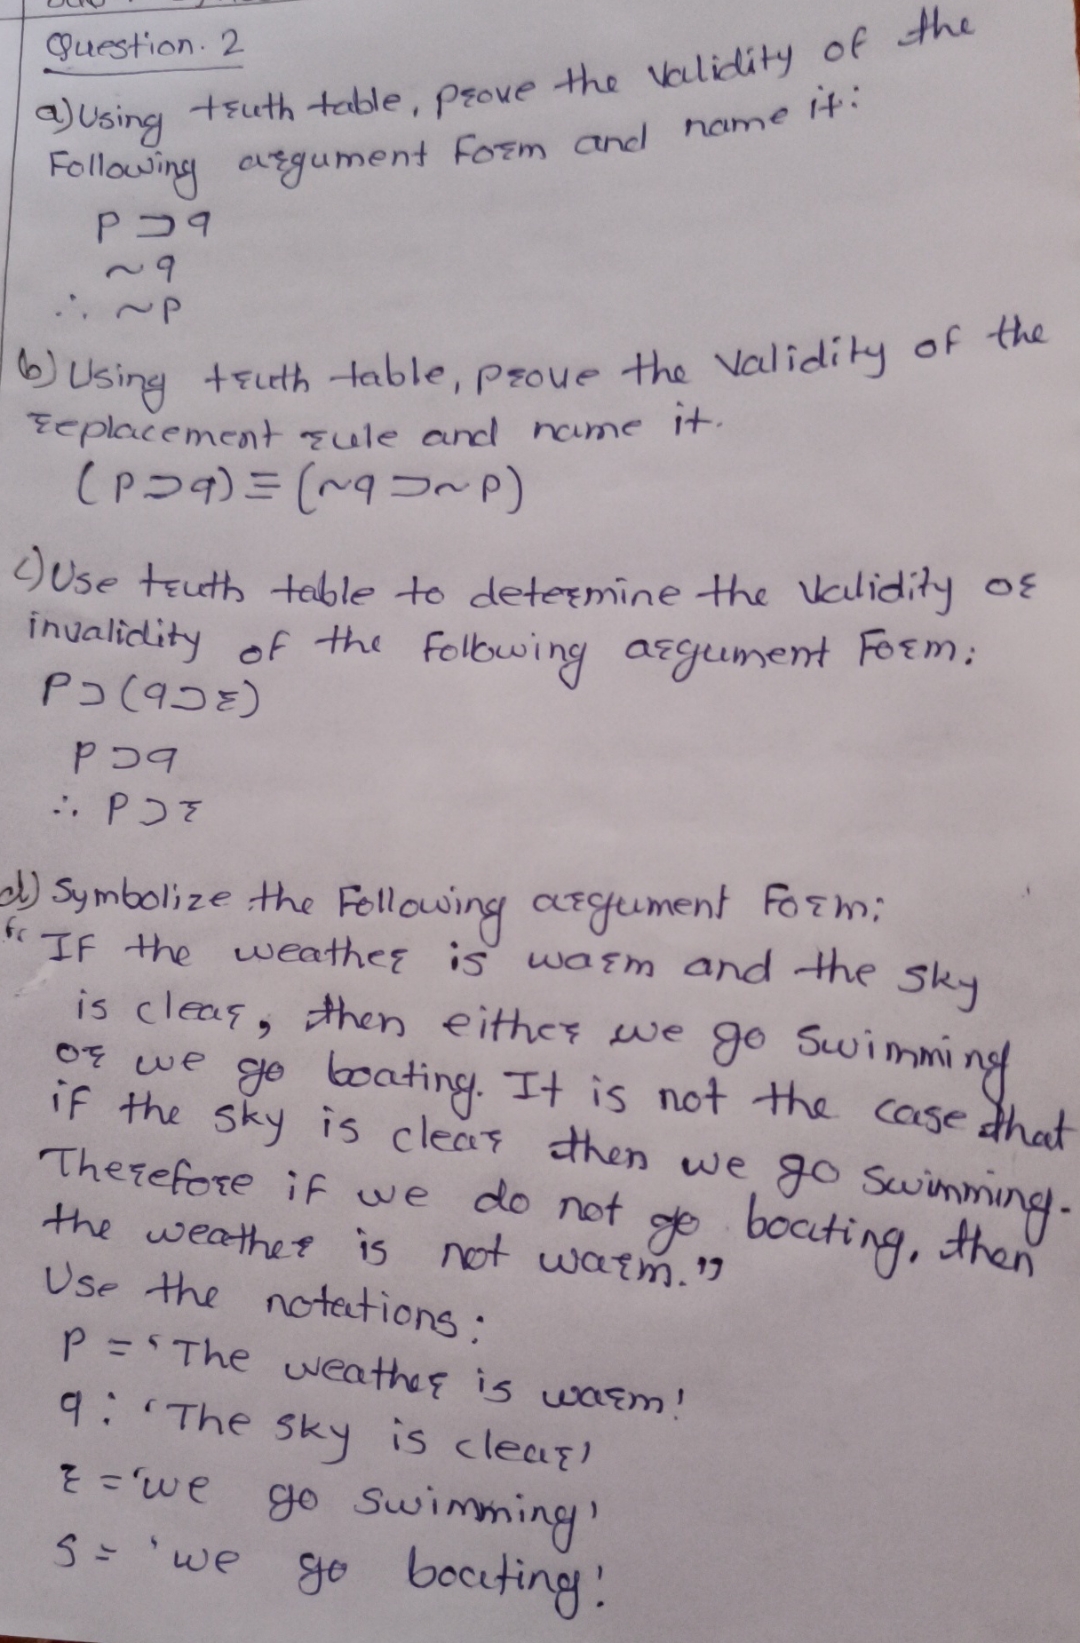 Question. 2
a) Using truth table, prove the validity of the
Following argument form and name it:
p ⊃ q
~ q
∴ ~p
b) Using truth table, prove the validity of the
replacement rule and name it.
(p ⊃ q) ≡ (~q ⊃ ~p)
c) Use truth table to determine the validity or
invalidity of the following argument form:
p ⊃ (q ⊃ r)
p ⊃ q
∴ p ⊃ r
d) Symbolize the following argument form:
"If the weather is warm and the sky
is clear, then either we go swimming
or we go boating. It is not the case that
if the sky is clear then we go swimming.
Therefore if we do not go boating, then
the weather is not warm."
Use the notations:
p = 'The weather is warm'
q : 'The sky is clear'
r = 'we go swimming'
s = 'we go boating'